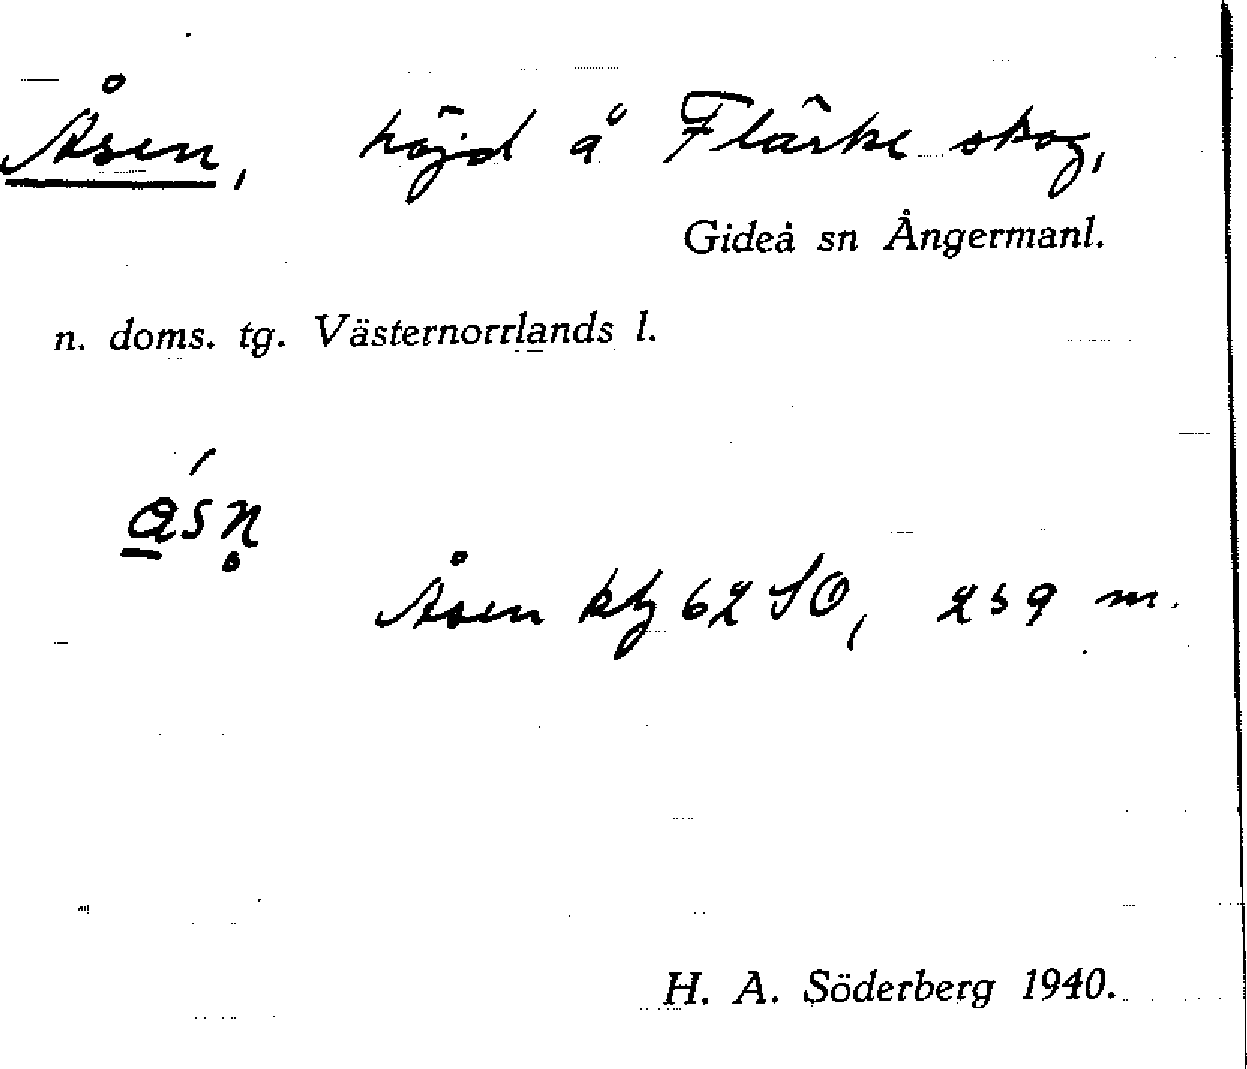 Åsen, höjd å Flärke skog,
Gideå sn Ångermanl.
n. doms. tg. Västernorrlands l.
Åsen kbl 62 SO, 239 m.
H. A. Söderberg 1940.